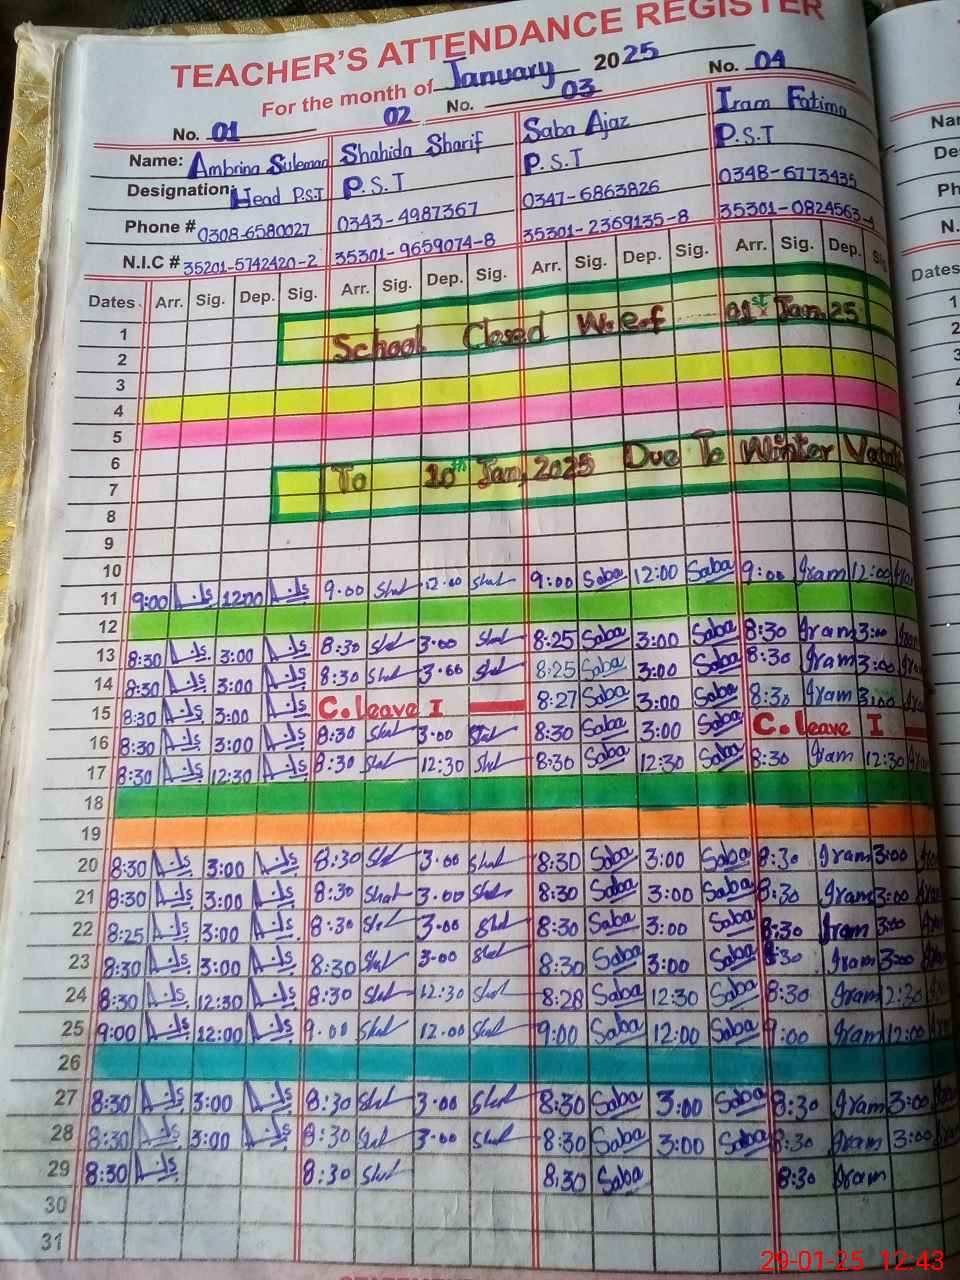 TEACHER'S ATTENDANCE REGISTER
For the month of January 2025
No. 01 02 No. 03 No. 04
Name: Ambrina Suleman Shahida Sharif Saba Ajaz Iram Fatima
Designation: Head P.S.T P.S.T P.S.T P.S.T
Phone # 0308-6580027 0343-4987367 0347-6863826 0348-6773435
N.I.C # 35201-5742420-2 35301-9659074-8 35301-2369135-8 35301-0824563-4
Dates Arr. Sig. Dep. Sig. Arr. Sig. Dep. Sig. Arr. Sig. Dep. Sig. Arr. Sig. Dep.
1 School Closed W.e.f 01st Jan, 25
2
3
4
5
6 To 10th Jan, 2025 Due To Winter
7
8
9
10
11 9:00 A.Js 12:00 A.Js 9.00 Shl 12.00 Shl 9:00 Saba 12:00 Saba 9:00 Iram 12:00
12
13 8:30 A.Js 3:00 A.Js 8:30 Shl 3.00 Shl 8:25 Saba 3:00 Saba 8:30 Iram 3:00
14 8:30 A.Js 3:00 A.Js 8:30 Shl 3.00 Shl 8:25 Saba 3:00 Saba 8:30 Iram 3:00
15 8:30 A.Js 3:00 A.Js C.leave I 8:27 Saba 3:00 Saba 8:30 Iram 3:00
16 8:30 A.Js 3:00 A.Js 8:30 Shl 3.00 Shl 8:30 Saba 3:00 Saba C.leave I
17 8:30 A.Js 12:30 A.Js 8:30 Shl 12:30 Shl 8:30 Saba 12:30 Saba 8:30 Iram 12:30
18
19
20 8:30 A.Js 3:00 A.Js 8:30 Shl 3.00 Shl 8:30 Saba 3:00 Saba 8:30 Iram 3:00
21 8:30 A.Js 3:00 A.Js 8:30 Shl 3.00 Shl 8:30 Saba 3:00 Saba 8:30 Iram 3:00
22 8:25 A.Js 3:00 A.Js 8:30 Shl 3.00 Shl 8:30 Saba 3:00 Saba 8:30 Iram 3:00
23 8:30 A.Js 3:00 A.Js 8:30 Shl 3.00 Shl 8:30 Saba 3:00 Saba 8:30 Iram 3:00
24 8:30 A.Js 12:30 A.Js 8:30 Shl 12:30 Shl 8:28 Saba 12:30 Saba 8:30 Iram 12:30
25 9:00 A.Js 12:00 A.Js 9.00 Shl 12.00 Shl 9:00 Saba 12:00 Saba 9:00 Iram 12:00
26
27 8:30 A.Js 3:00 A.Js 8:30 Shl 3.00 Shl 8:30 Saba 3:00 Saba 8:30 Iram 3:00
28 8:30 A.Js 3:00 A.Js 8:30 Shl 3.00 Shl 8:30 Saba 3:00 Saba 8:30 Iram 3:00
29 8:30 A.Js 8:30 Shl 8:30 Saba 8:30 Iram
30
31
29-01-25 12:43